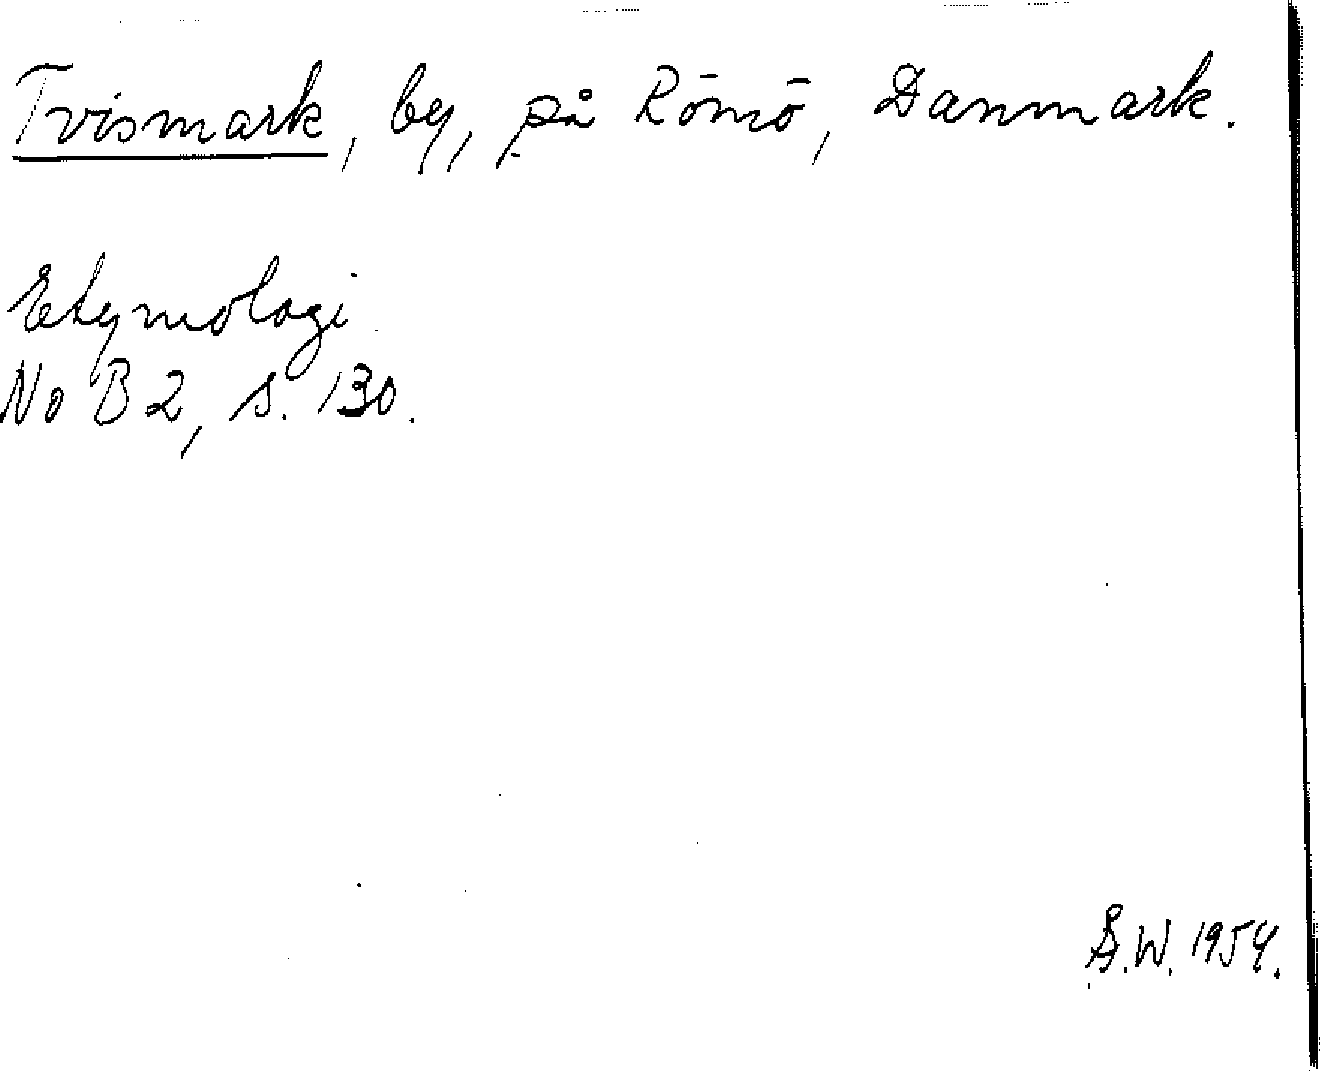 Tvismark, by, på Römö, Danmark.
Etymologi
NoB 2, s. 130.
Å.W. 1954.